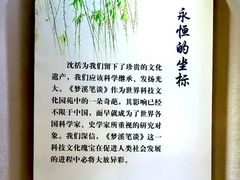 永恒的坐标
沈括为我们留下了珍贵的文化
遗产，我们应该科学继承、发扬光
大。《梦溪笔谈》作为世界科技文
化园苑中的一朵奇葩，其影响已经
不限于中国，而早就成为了世界各
国科学家、史学家所重视的研究对
象。我们深信，《梦溪笔谈》这一
科技文化瑰宝在促进人类社会发展
的进程中必将大放异彩。